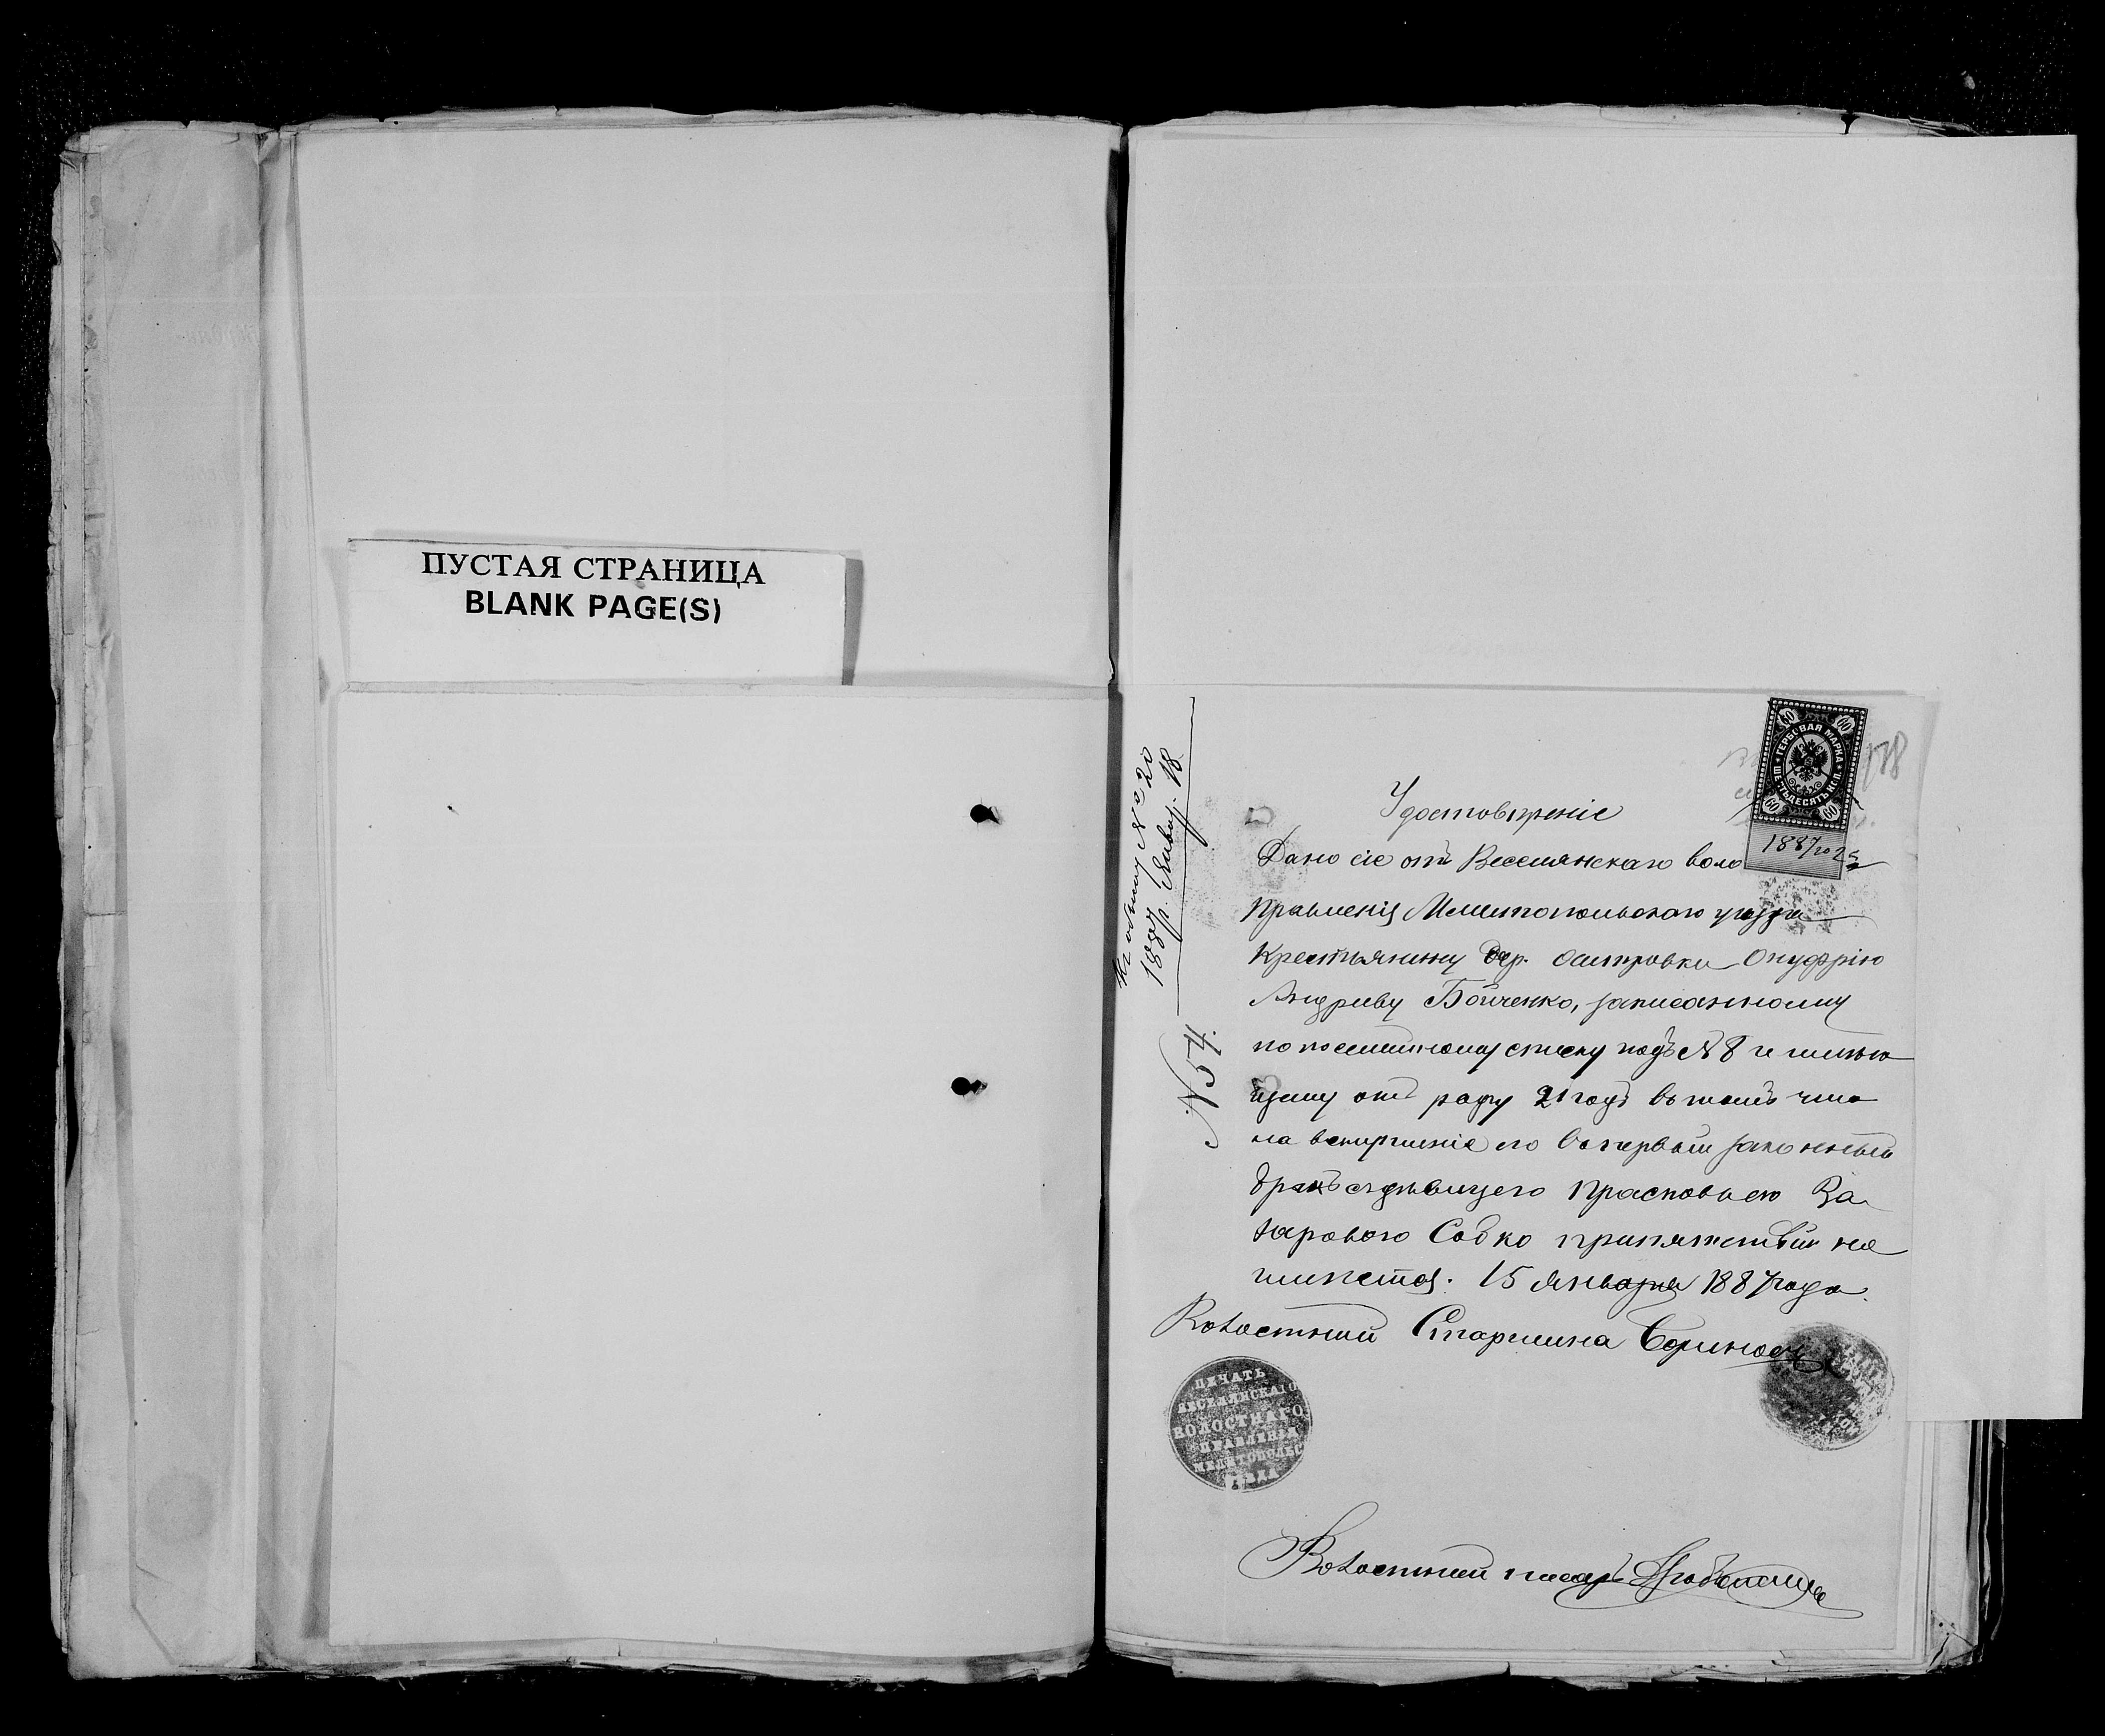 ПУСТАЯ СТРАНИЦА
BLANK PAGE(S)
Къ обыску № 20
1887 г. Январ. 18
N 54.
178
ГЕРБОВАЯ МАРКА
ШЕСТЬДЕСЯТЪ КОП.
60 60 60 60
1887го
Удостовѣреніе
Дано сіе отъ Веселянскаго воло
правленія Мелитопольскаго уѣзда
Крестьянину дер. Онуфрію
Андрееву Бойченко, записанному
по посемейному списку подъ № 8 и имѣю
щему отъ роду 21 годъ въ томъ что
на вступленіе его въ первый законный
бракъ съ дѣвицею Прасковьею За
харовою Собко препятствій не
имѣется. 15 Января 1887 года.
Волостный Старшина
ПЕЧАТЬ
ВЕСЕЛЯНСКАГО
ВОЛОСТНАГО
ПРАВЛЕНІЯ
МЕЛИТОПОЛЬС
УѢЗДА
Волостный писарь